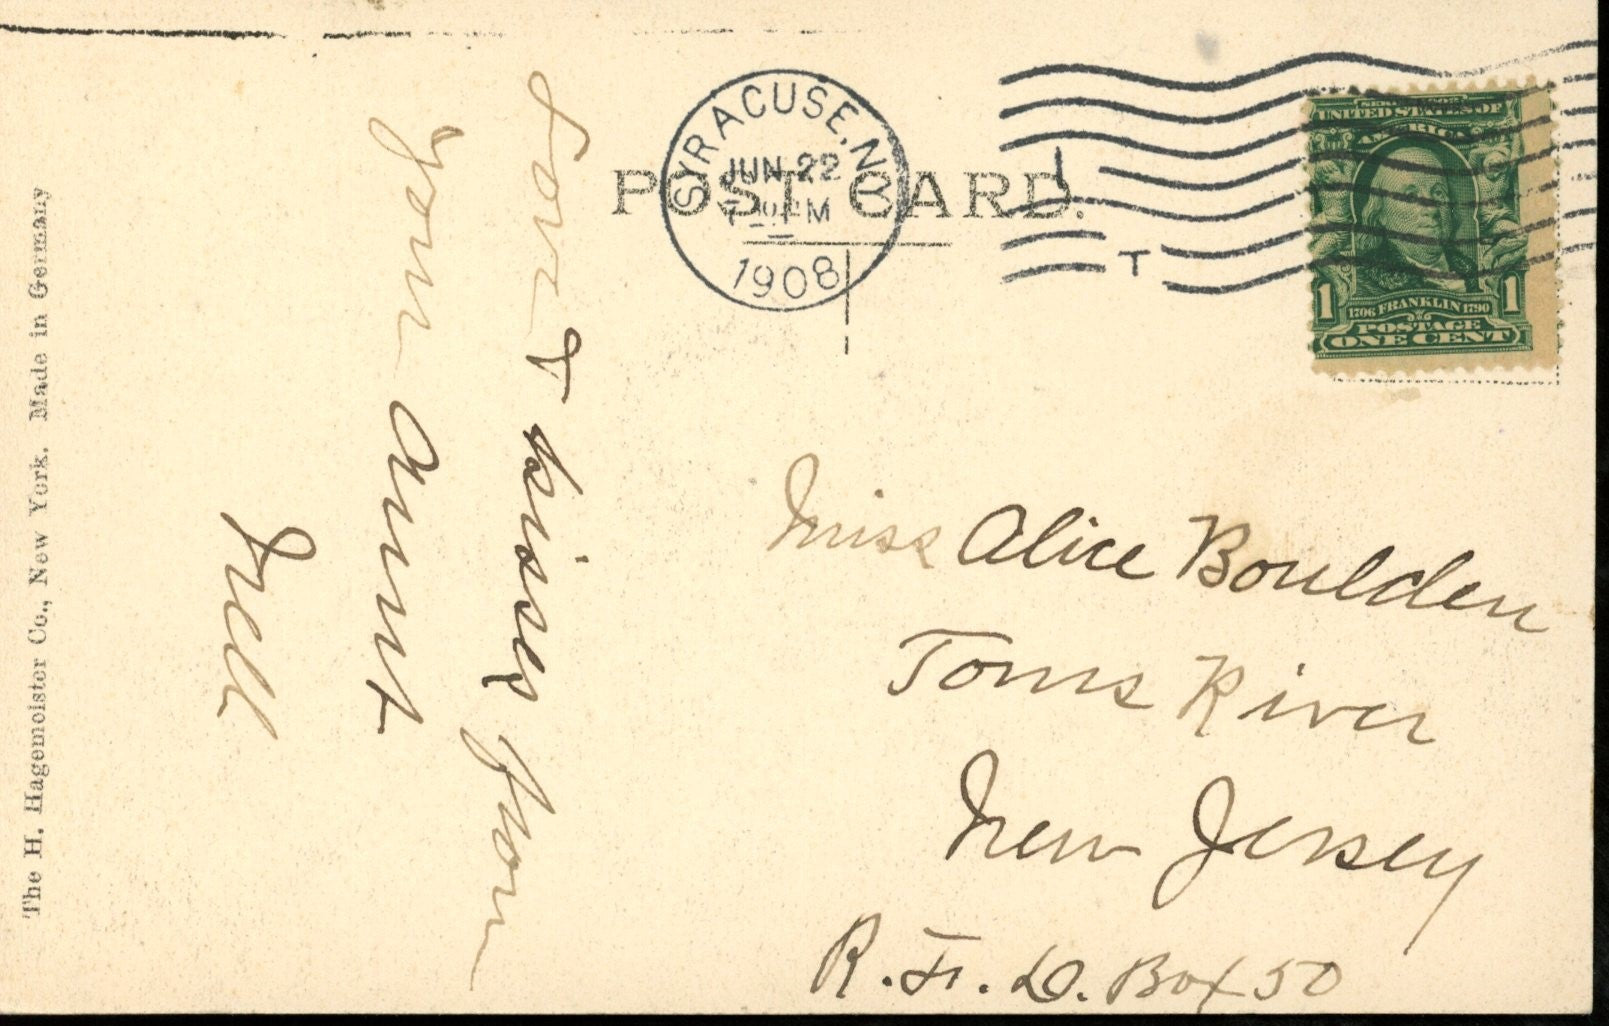 POST CARD.
SYRACUSE, N.Y.
JUN 22
1908
T
SERIES 1902
UNITED STATES OF
AMERICA
1 1
1706 FRANKLIN 1790
POSTAGE
ONE CENT
Love & kisses from
your aunt
Nell
Miss Alice Boulden
Toms River
New Jersey
R. F. D. Box 50
The H. Hagemeister Co., New York. Made in Germany